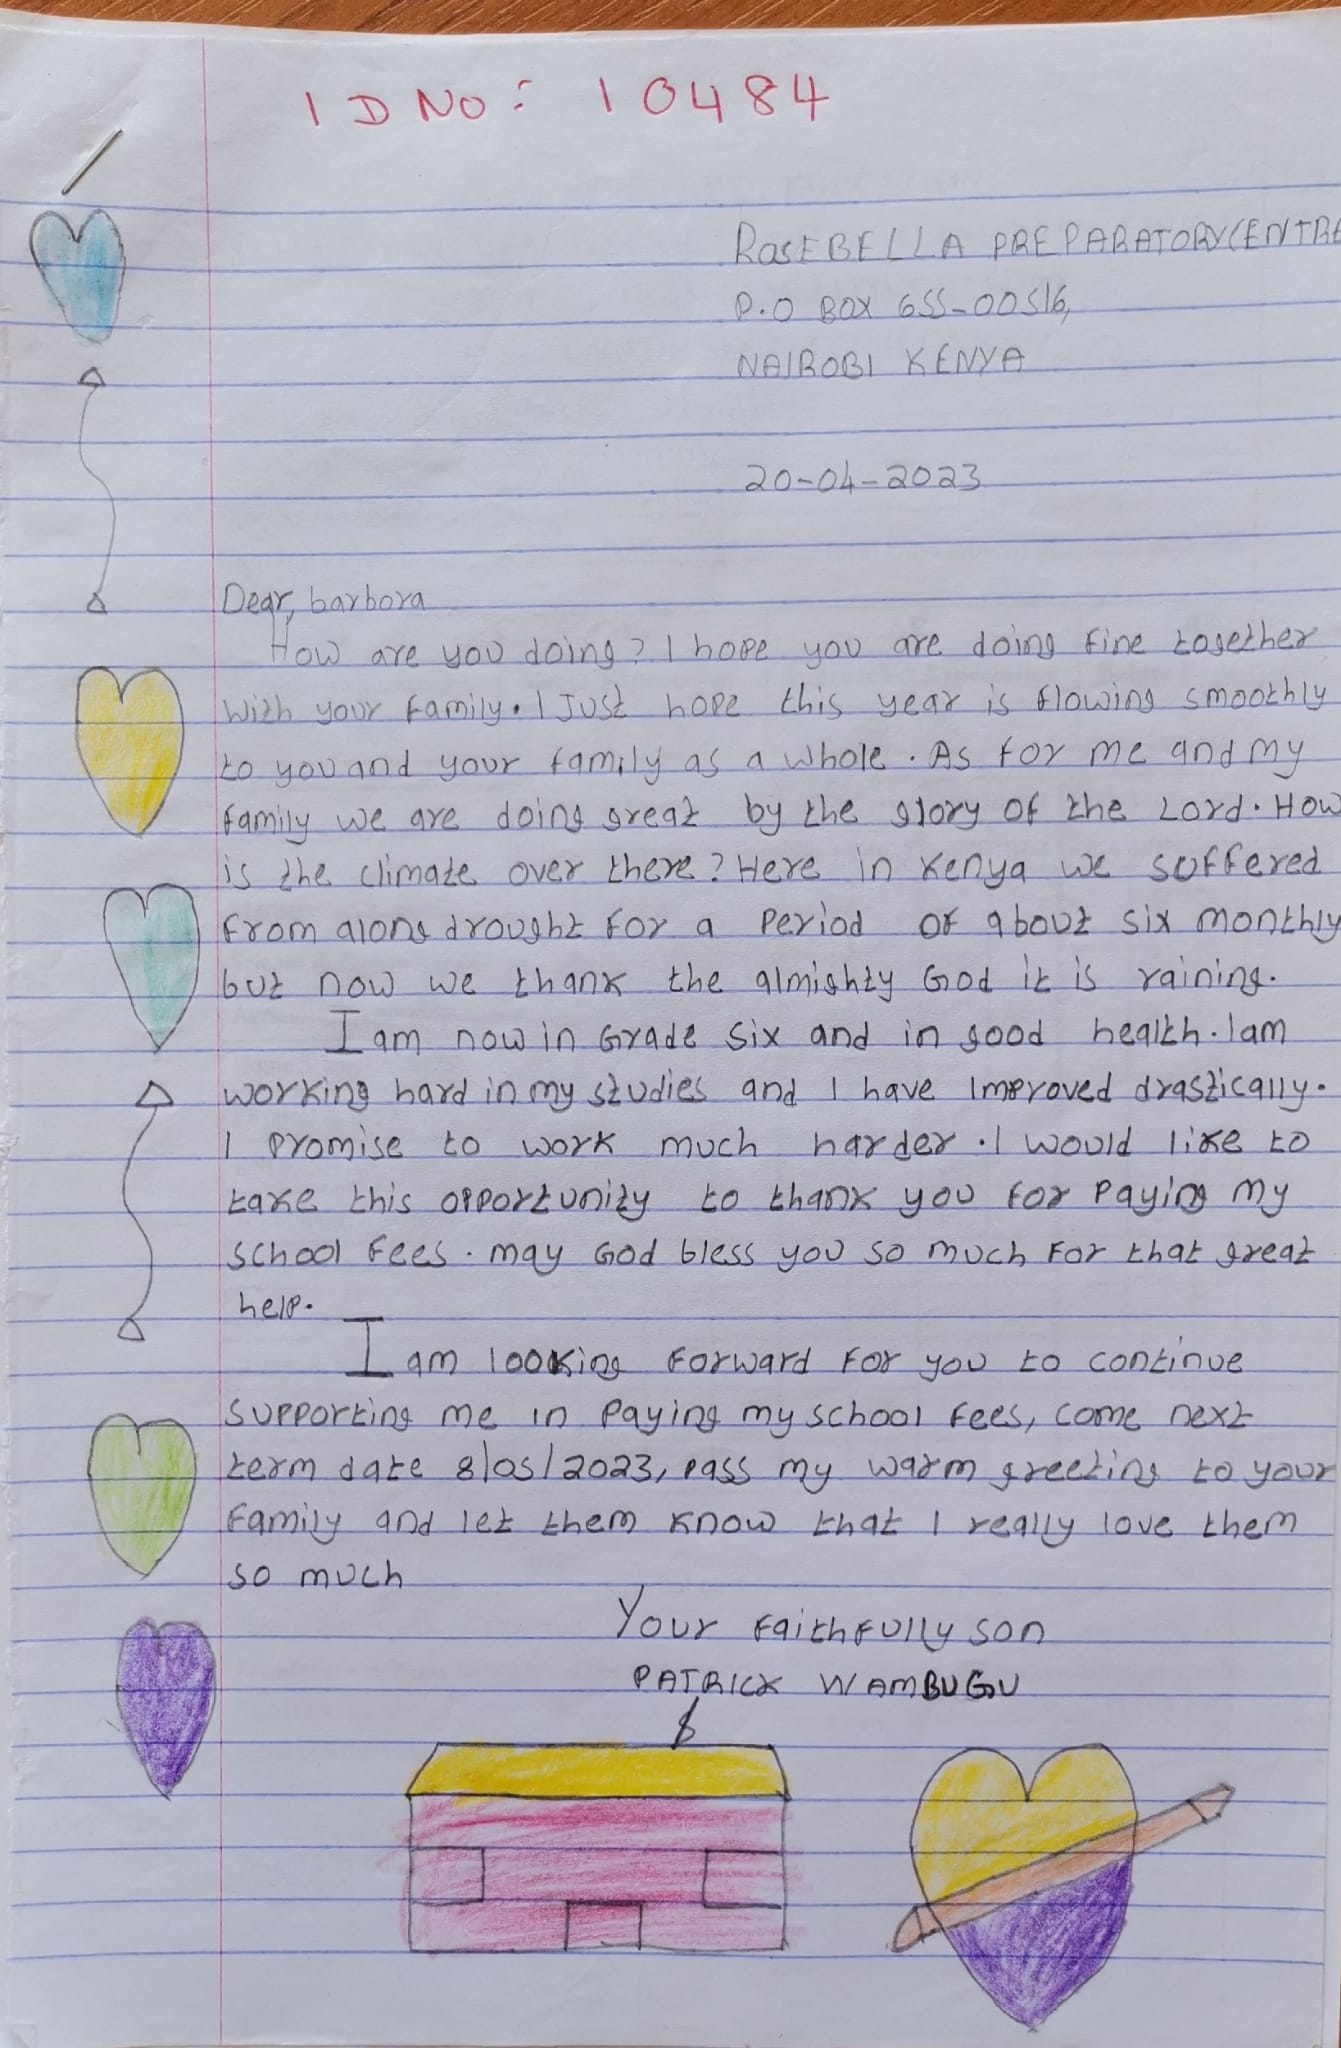 ID NO: 10484
ROSEBELLA PREPARATORY CENTRE
P.O BOX 655-00516,
NAIROBI KENYA
20-04-2023
Dear, barbora
How are you doing? I hope you are doing fine together
with your family. I Just hope this year is flowing smoothly
to you and your family as a whole. As for me and my
family we are doing great by the glory of the Lord. How
is the climate over there? Here in Kenya we suffered
from along drought for a period of about six monthly
but now we thank the almighty God it is raining.
I am now in Grade six and in good health. Iam
working hard in my studies and I have improved drastically.
I promise to work much harder. I would like to
take this opportunity to thank you for paying my
school fees. may God bless you so much for that great
help.
I am looking forward for you to continue
supporting me in paying my school fees, come next
term date 8/05/2023, pass my warm greeting to your
family and let them know that I really love them
so much
Your faithfully son
PATRICK WAMBUGU